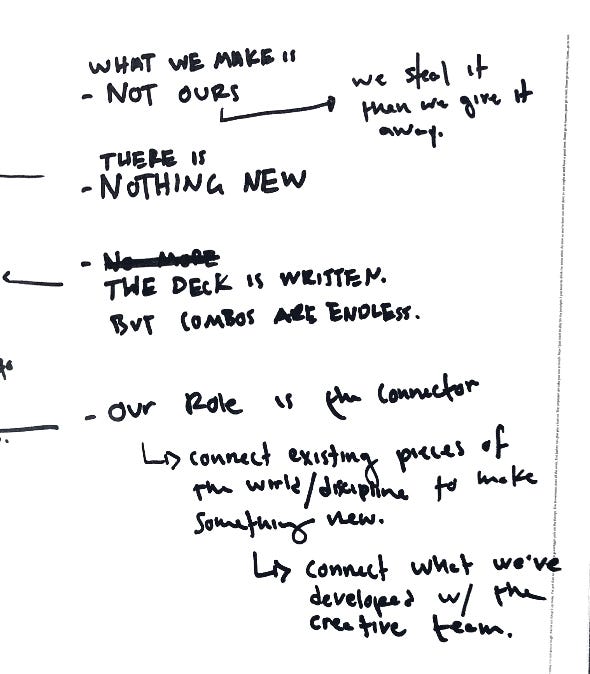 WHAT WE MAKE IS
- NOT OURS
we steal it
then we give it
away.
THERE IS
- NOTHING NEW
- No MORE
THE DECK IS WRITTEN.
BUT COMBOS ARE ENDLESS.
- OUR ROLE is the connector
connect existing pieces of
the world/discipline to make
something new.
connect what we've
developed w/ the
creative team.